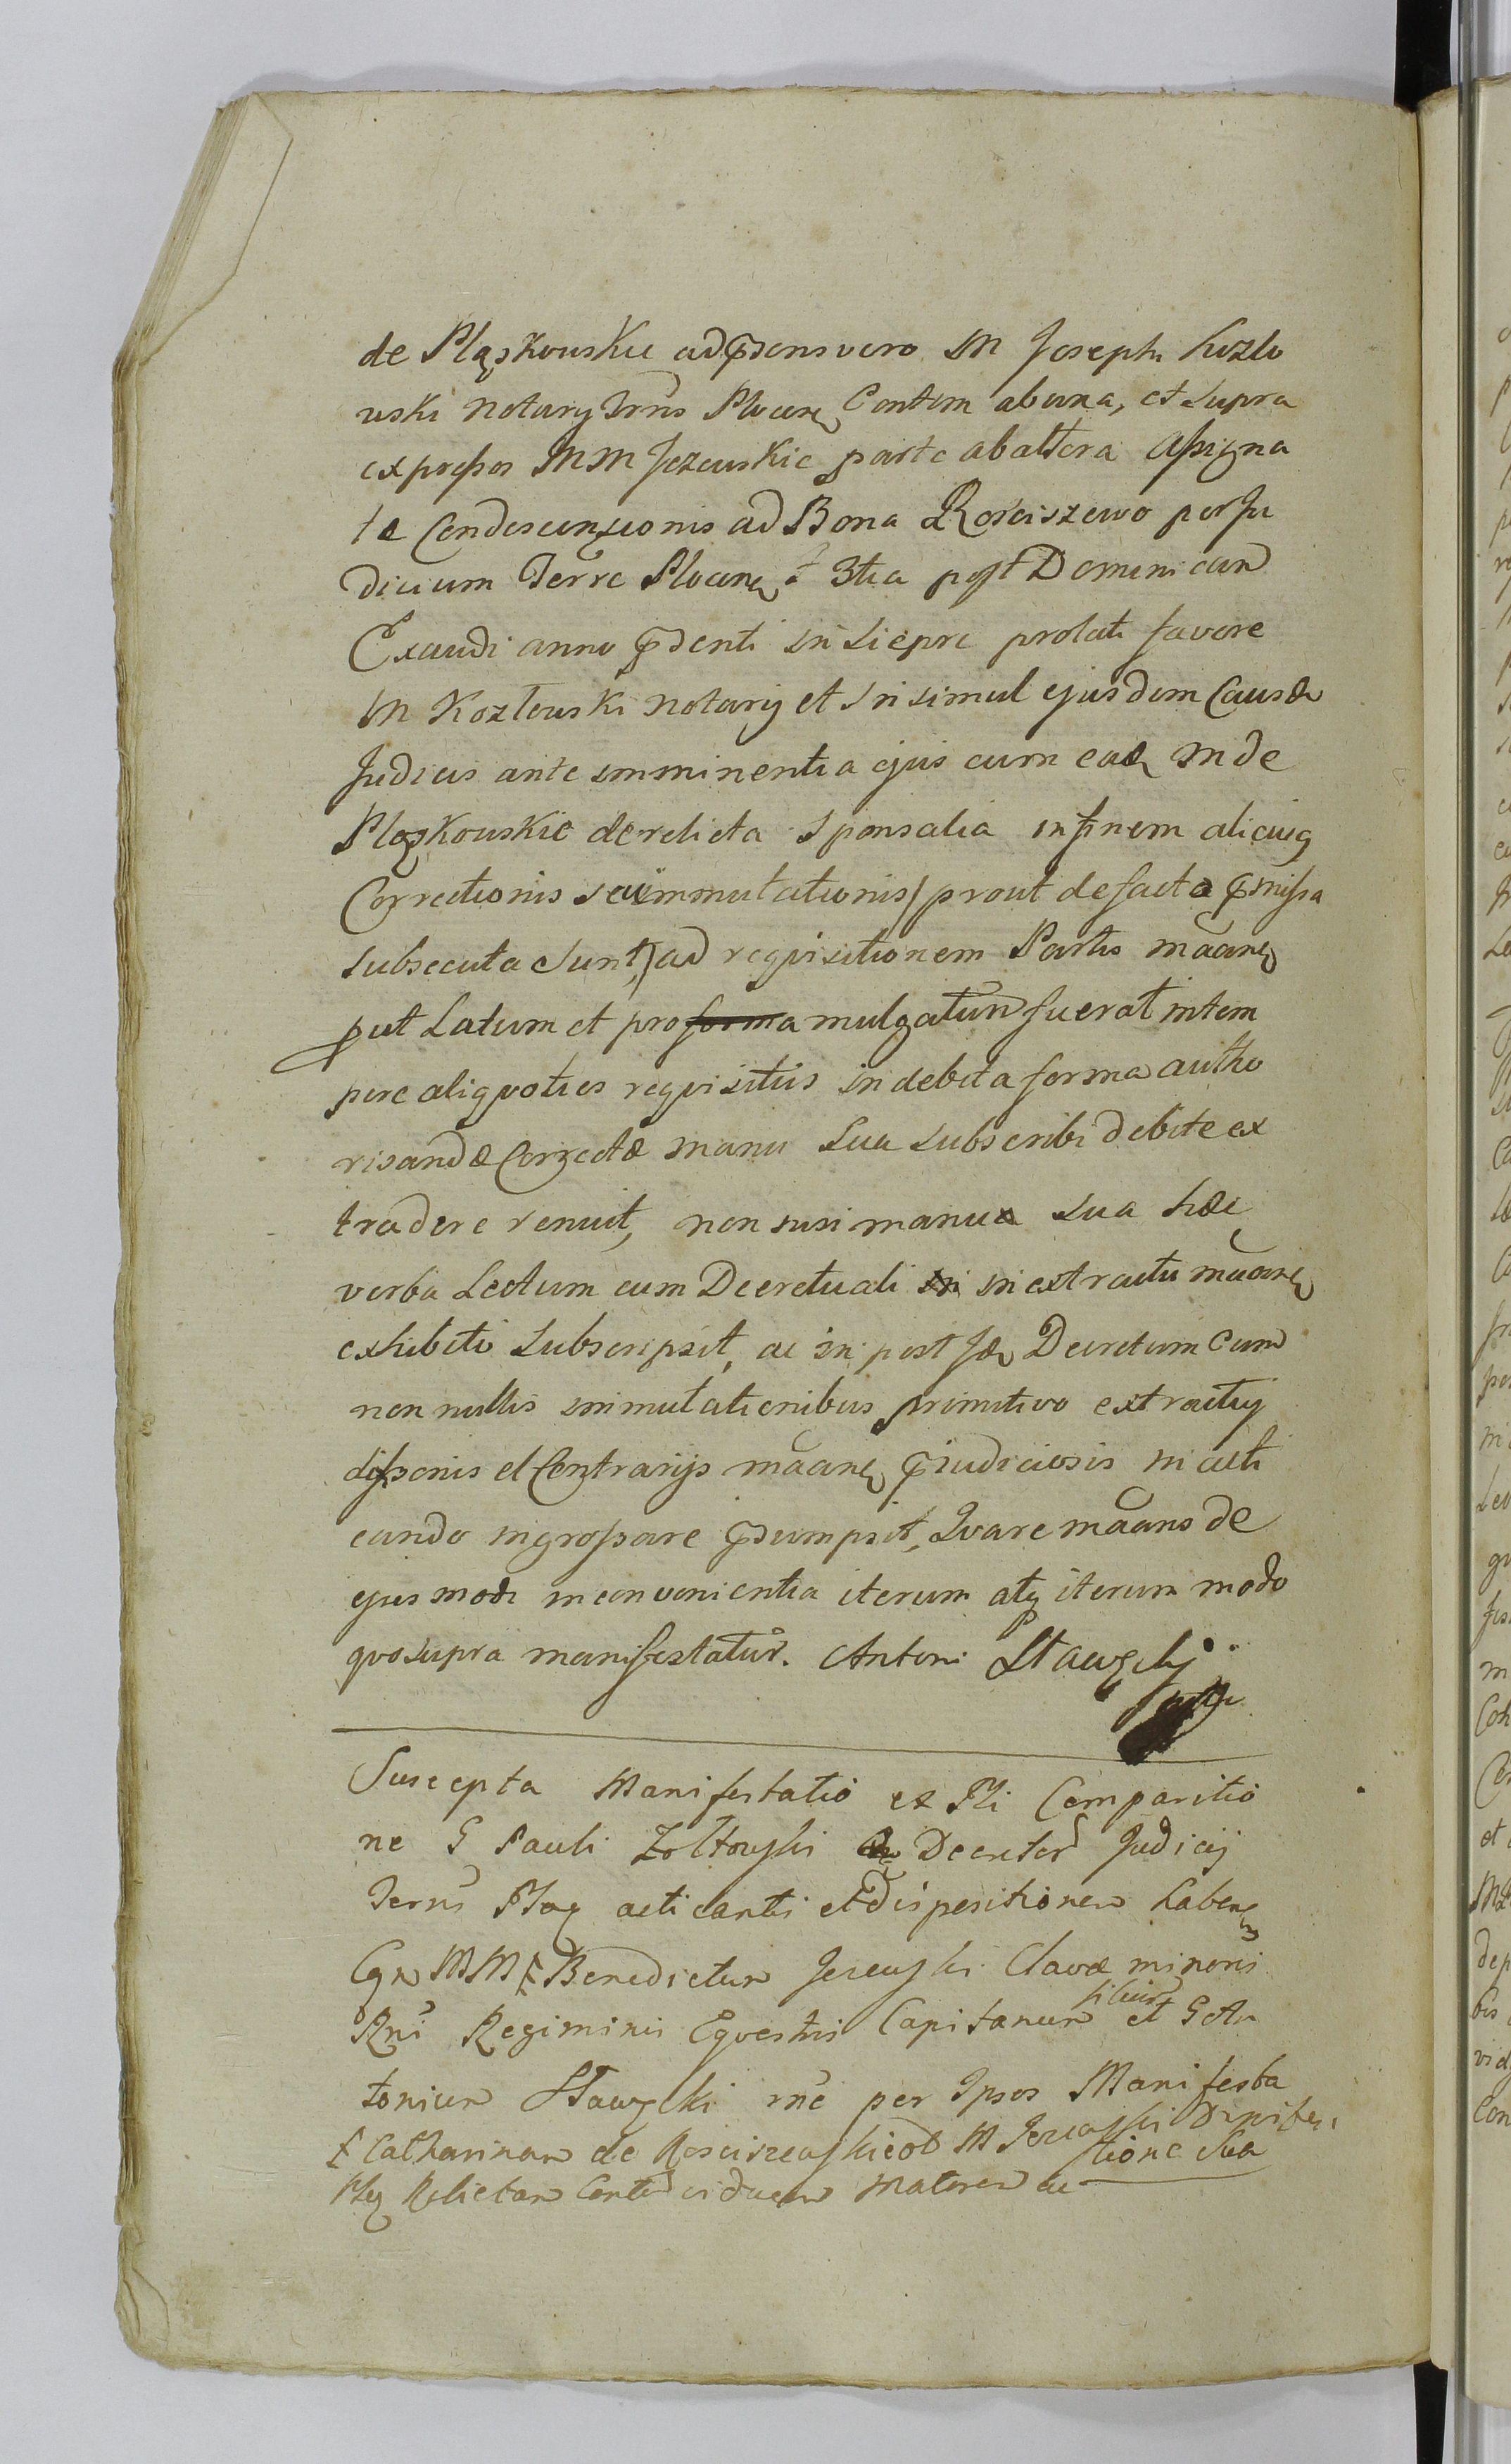 de Pląskouskie ad p̃sens vero M Joseph Kozlo
uski Notarÿ Trrñs Plocen Contem ab una, et supra
expressos MM Jezeuskie parte ab altera Assigna
ta Condescensionis ad Bona Rościszewo per Ju
dicium Terre Plocen f 3tia post Dominicam
Exaudi anno p̃denti in Siepre prolati favore
M Kozłouski Notarÿ et in simul ejusdem Causæ
Judicis ante imminentia ejus cum ead M de
Pląskouskie derelicta sponsalia in finem alicuig
Correctionis seu immutationis / prout de facto p̃missa
subsecuta sunt,) ad requisitionem Partis mãane
put Latum et proforma mulgatum fuerat in tem
pore aliqvoties reqvisitus in debita forma autho
risandæ Correctæ manu sua subscribi debite ex
tradere renuit, non nisi manu sua hæc
verba Lectum cum Decretuali in extractu mãane
exhibito subscripsit, ac in post id Decretum cum
non nullis immutationibus primitivo extractuj
dissonis et Contrarijs mãane p̃iudiciosis in acti
cando ingrossare p̃sumpsit, Qvare mãans de
ejusmodi inconvenientia iterum atq iterum modo
qvo supra manifestatur. Antoni Stawski
mpp
Suscepta Manifestatio ex Pli Comparitio
ne G Pauli Zołtowski Decretor Judicij
Terrñs Płoc acticantis et dispositionem haben
Cgn MM ꝉ Benedictum Jezewski Clavæ minoris
Rni Regiminis Eqvestris Capitaneum filium et G An
tonium Stawski mẽ per Ipsos Manifesta
tione sua
ꝉ Catharinam de Rosciszewskie ol M Jezewski Dapiferi
Plo Relictam Contem viduam Matrem ac